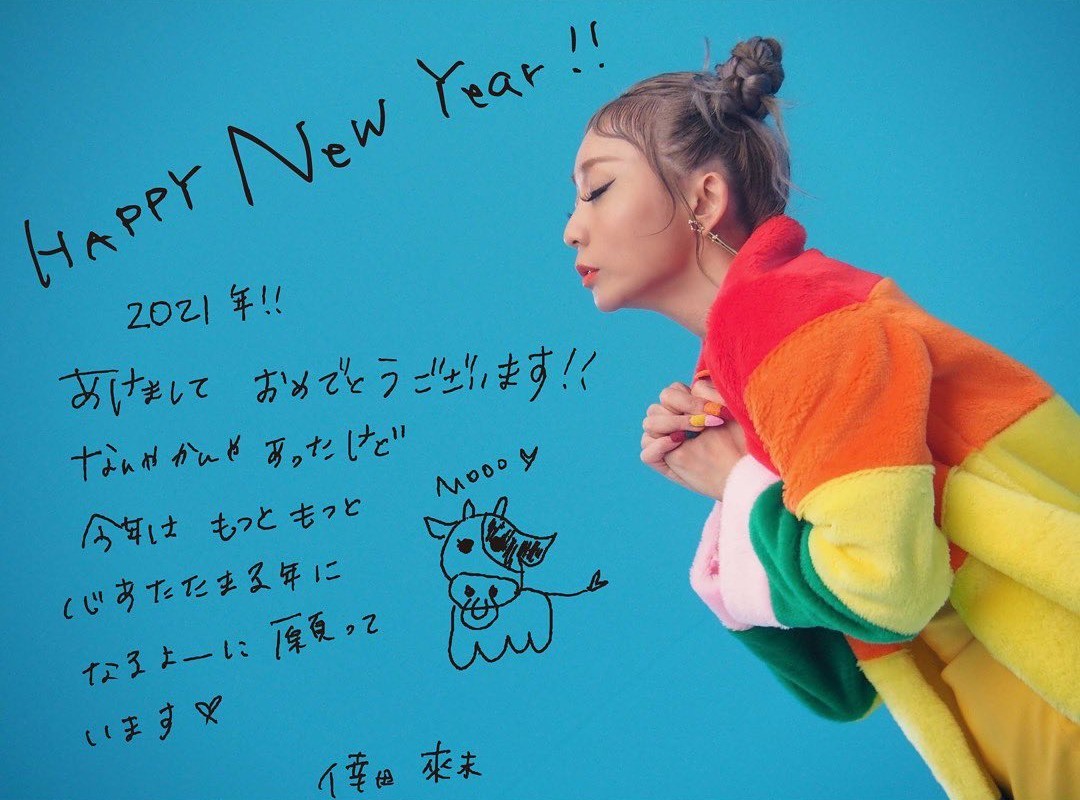 HAPPY NeW Year!!
2021年!!
あけまして おめでとうございます!!
なんやかんや あったけど
今年は もっともっと
じあたたまる年に
なるよーに 願って
います♡
Mooo♡
倖田 來未